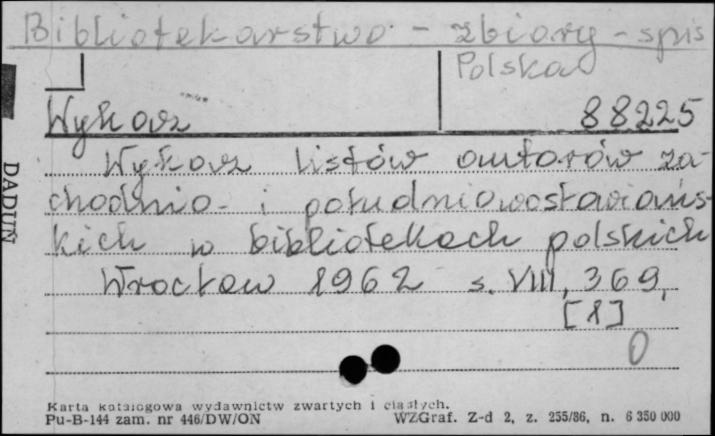 Bibliotekarstwo - zbiory - spis
Polska
Wykaz 88225
Wykaz listów autorów za-
chodnio- i południowosłowiańs-
kich w bibliotekach polskich
Wrocław 1962 s. VIII, 369,
[1]
0
DADUŃ
Karta katalogowa wydawnictw zwartych i ciągłych.
Pu-B-144 zam. nr 446/DW/ON WZGraf. Z-d 2, z. 255/86, n. 6 350 000